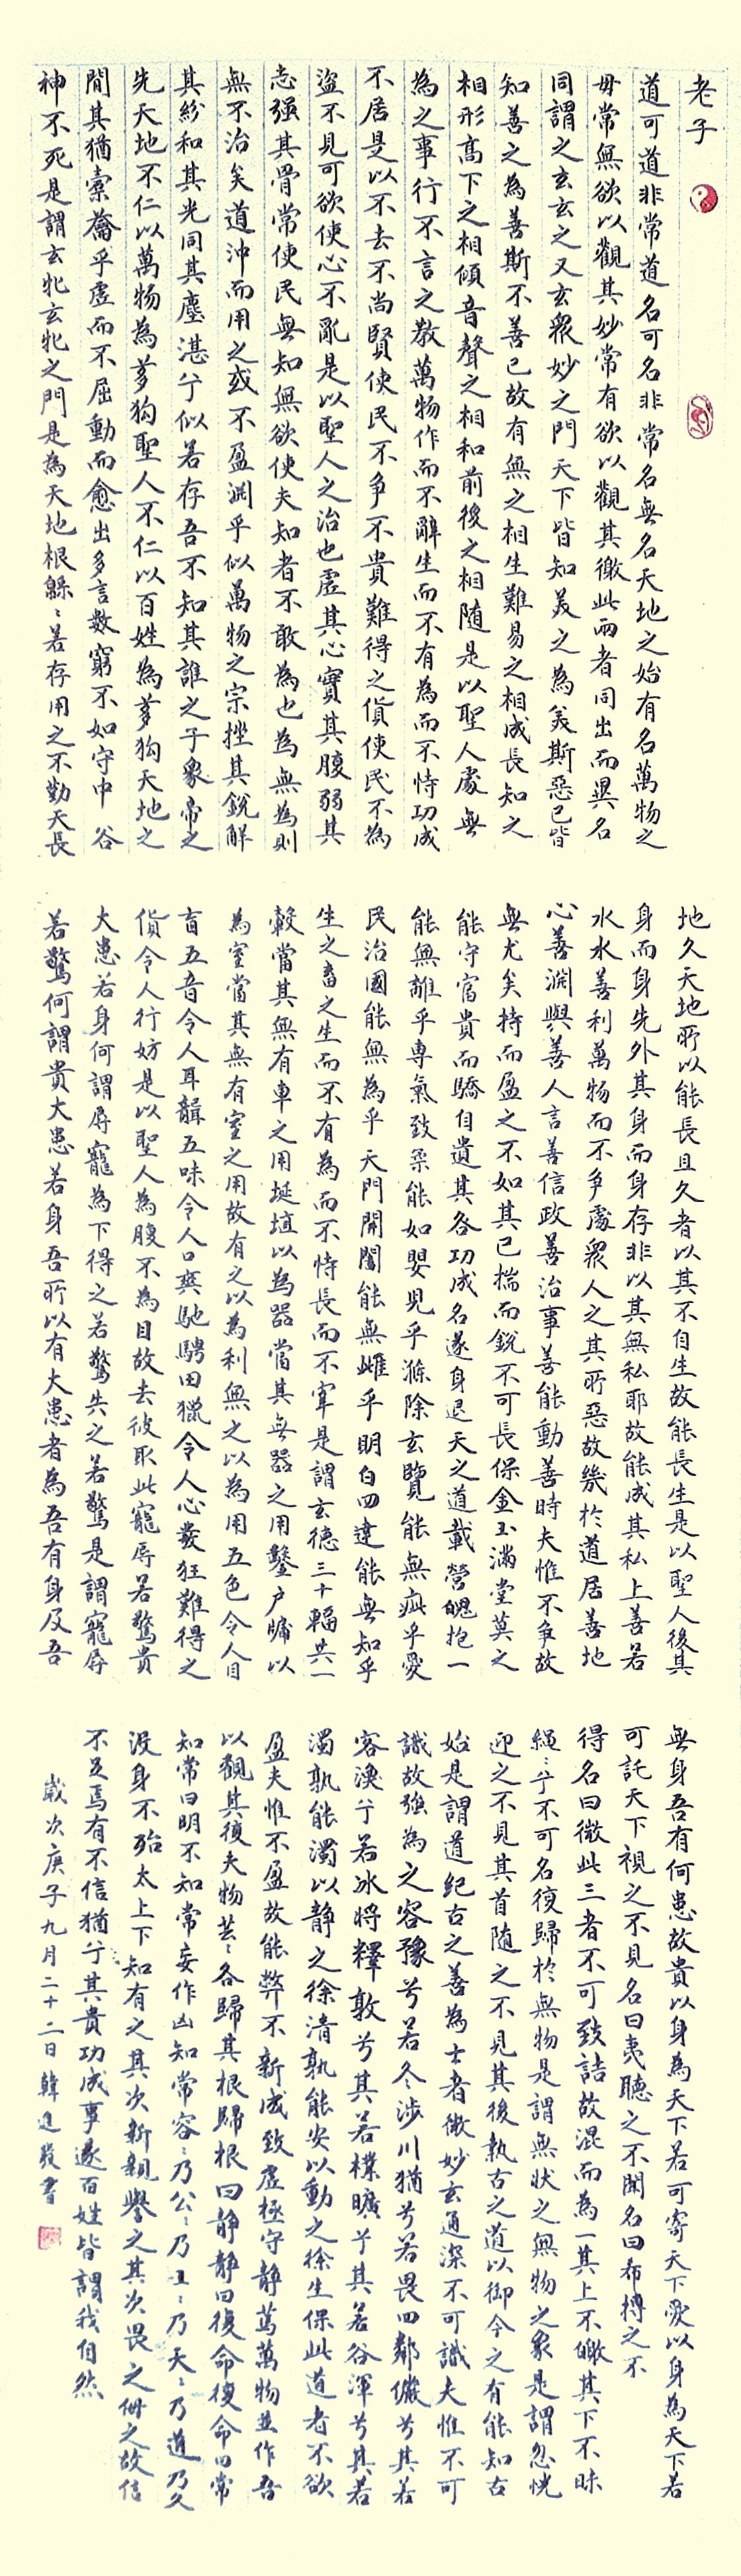 老子
道可道非常道名可名非常名無名天地之始有名萬物之
母常無欲以觀其妙常有欲以觀其徼此兩者同出而異名
同謂之玄玄之又玄眾妙之門天下皆知美之為美斯惡已皆
知善之為善斯不善已故有無之相生難易之相成長知之
相形高下之相傾音聲之相和前後之相隨是以聖人處無
為之事行不言之教萬物作而不辭生而不有為而不恃功成
不居是以不去不尚賢使民不爭不貴難得之貨使民不為
盜不見可欲使心不亂是以聖人之治也虛其心實其腹弱其
志强其骨常使民無知無欲使夫知者不敢為也為無為則
無不治矣道沖而用之或不盈淵乎似萬物之宗挫其銳解
其紛和其光同其塵湛兮似若存吾不知其誰之子象帝之
先天地不仁以萬物為芻狗聖人不仁以百姓為芻狗天地之
間其猶橐籥乎虛而不屈動而愈出多言數窮不如守中 谷
神不死是謂玄牝玄牝之門是為天地根緜〻若存用之不勤天長
地久天地所以能長且久者以其不自生故能長生是以聖人後其
身而身先外其身而身存非以其無私耶故能成其私上善若
水水善利萬物而不爭處眾人之其所惡故幾於道居善地
心善淵與善人言善信政善治事善能動善時夫惟不爭故
無尤矣持而盈之不如其已揣而銳不可長保金玉滿堂莫之
能守富貴而驕自遺其咎功成名遂身退天之道載營魄抱一
能無離乎專氣致柔能如嬰兒乎滌除玄覽能無疵乎愛
民治國能無為乎天門開闔能無雌乎明白四達能無知乎
生之畜之生而不有為而不恃長而不宰是謂玄德三十輻共一
轂當其無有車之用埏埴以為器當其無器之用鑿户牖以
為室當其無有室之用故有之以為利無之以為用五色令人目
盲五音令人耳聾五味令人口爽馳騁田獵令人心發狂難得之
貨令人行妨是以聖人為腹不為目故去彼取此寵辱若驚貴
大患若身何謂辱寵為下得之若驚失之若驚是謂寵辱
若驚何謂貴大患若身吾所以有大患者為吾有身及吾
無身吾有何患故貴以身為天下若可寄天下愛以身為天下若
可託天下視之不見名曰夷聽之不聞名曰希摶之不
得名曰微此三者不可致詰故混而為一其上不皦其下不昧
繩〻乎不可名復歸於無物是謂無狀之無物之象是謂忽恍
迎之不見其首隨之不見其後執古之道以御今之有能知古
始是謂道紀古之善為士者微妙玄通深不可識夫惟不可
識故強為之容豫兮若冬涉川猶兮若畏四鄰儼兮其若
客渙兮若冰將釋敦兮其若樸曠兮其若谷渾兮其若
濁孰能濁以靜之徐清孰能安以動之徐生保此道者不欲
盈夫惟不盈故能弊不新成致虛極守靜篤萬物並作吾
以觀其復夫物芸〻各歸其根歸根曰靜靜曰復命復命曰常
知常曰明不知常妄作凶知常容〻乃公〻乃王〻乃天〻乃道乃久
沒身不殆太上下知有之其次新親譽之其次畏之侮之故信
不足焉有不信猶兮其貴功成事遂百姓皆謂我自然
歲次庚子九月二十二日韓進發書